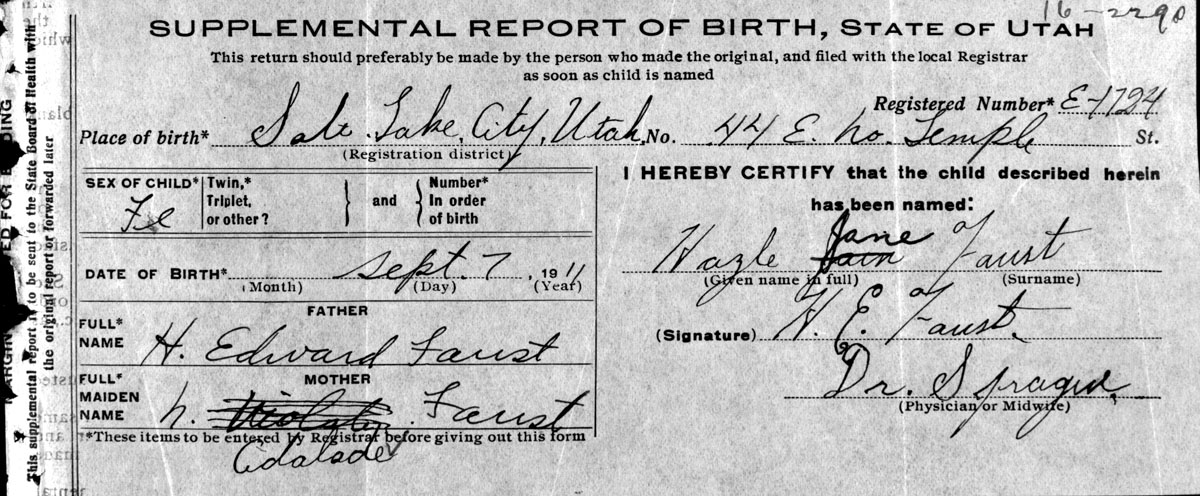 16-2290
SUPPLEMENTAL REPORT OF BIRTH, STATE OF UTAH
This return should preferably be made by the person who made the original, and filed with the local Registrar
as soon as child is named
Registered Number* E-1724
Place of birth* Salt Lake City, Utah, No. 44 E. No. Temple St.
(Registration district)
SEX OF CHILD* Fe
Twin,*
Triplet,
or other?
and
Number*
In order
of birth
DATE OF BIRTH* Sept. 7, 1911
(Month) (Day) (Year)
FATHER
FULL*
NAME H. Edward Faust
MOTHER
FULL*
MAIDEN
NAME h. Faust
*These items to be entered by Registrar before giving out this form
Adalade
I HEREBY CERTIFY that the child described herein
has been named:
Jane
Hazle Faust
(Given name in full) (Surname)
(Signature) H. E. Faust
Dr. Sprague
(Physician or Midwife)
This supplemental report is to be sent to the State Board of Health with
the original report or forwarded later